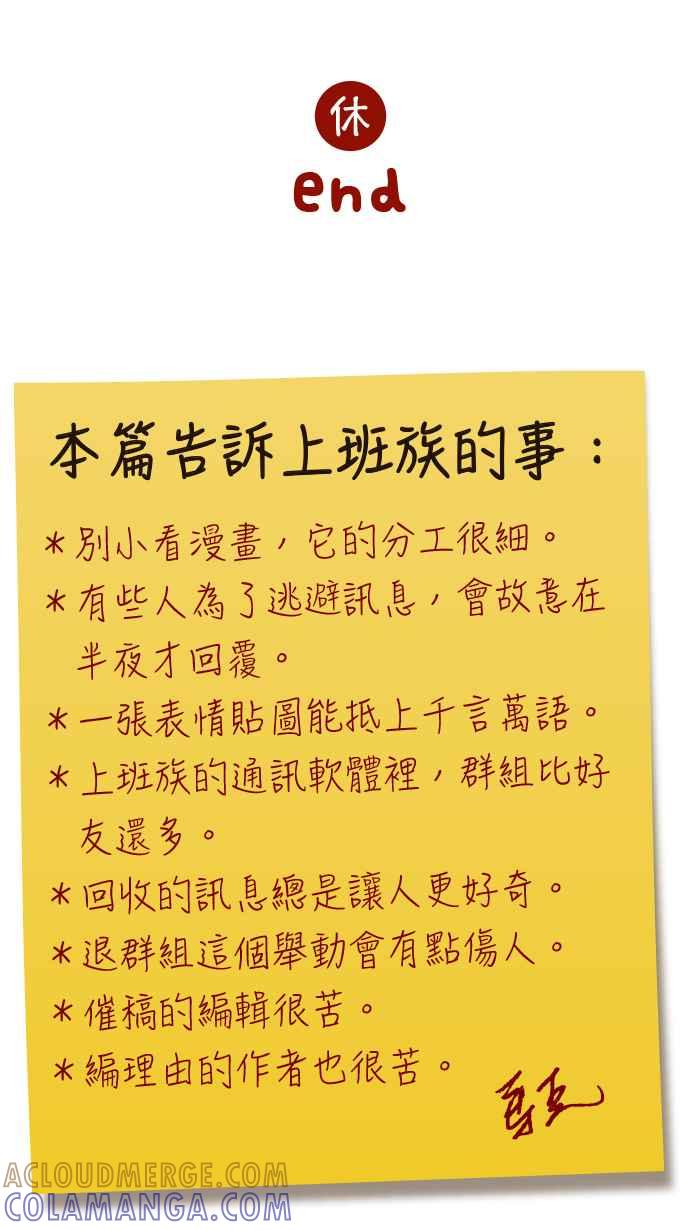 休
end
本篇告訴上班族的事：
＊別小看漫畫，它的分工很細。
＊有些人為了逃避訊息，會故意在
半夜才回覆。
＊一張表情貼圖能抵上千言萬語。
＊上班族的通訊軟體裡，群組比好
友還多。
＊回收的訊息總是讓人更好奇。
＊退群組這個舉動會有點傷人。
＊催稿的編輯很苦。
＊編理由的作者也很苦。
ACLOUDMERGE.COM
COLAMANGA.COM